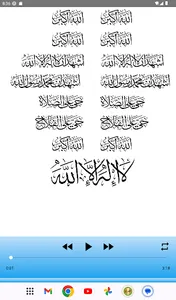 9:36
الله أكبر الله أكبر
الله أكبر الله أكبر
أشهد أن لا إله إلا الله أشهد أن لا إله إلا الله
أشهد أن محمدا رسول الله أشهد أن محمدا رسول الله
حي على الصلاة حي على الصلاة
حي على الفلاح حي على الفلاح
الله أكبر الله أكبر
لا إله إلا الله